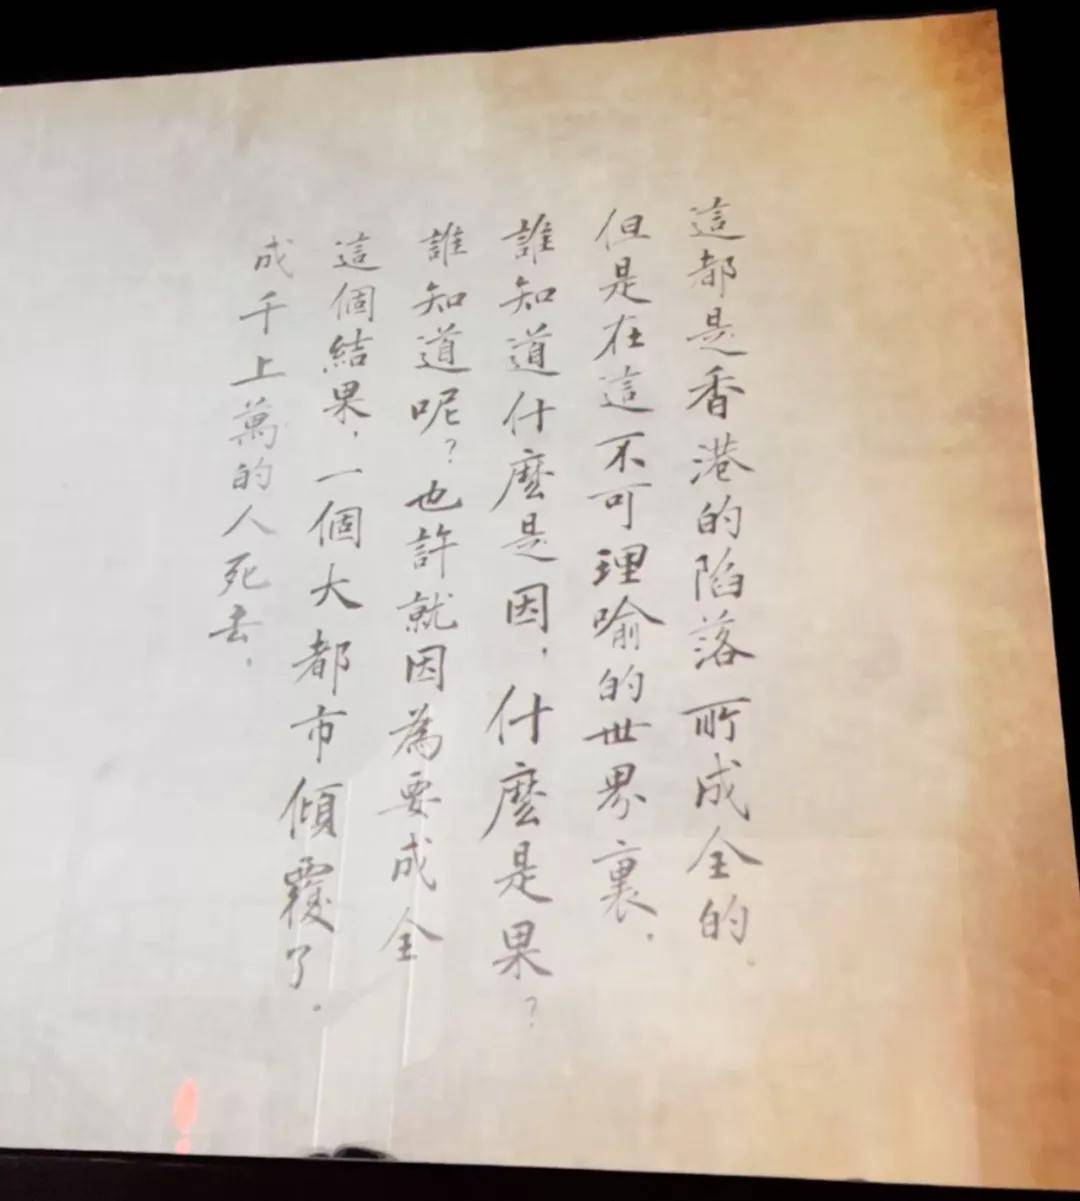 這都是香港的陷落所成全的.
但是在這不可理喻的世界裏.
誰知道什麼是因.什麼是果?
誰知道呢?也許就因為要成全
這個結果.一個大都市傾覆了.
成千上萬的人死去.